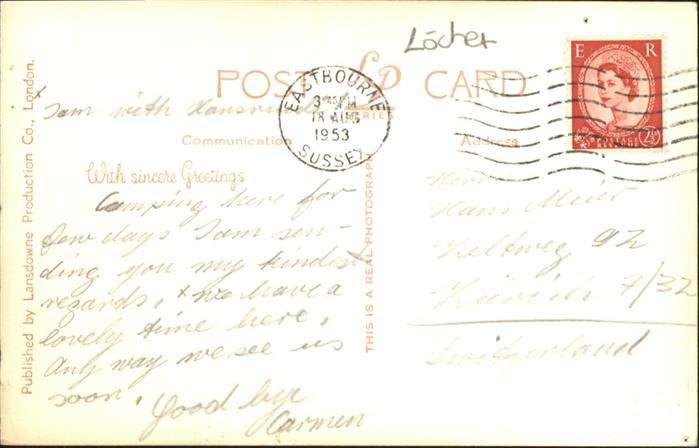 Löcher
POST CARD
LD
SERIES
E R
POSTAGE
REVENUE
2½
EASTBOURNE
3 PM
18 AUG
1953
SUSSEX
Published by Lansdowne Production Co., London.
Communication
Address
With sincere Greetings
THIS IS A REAL PHOTOGRAPH
x I am with Hansruedi
Camping here for
few days I am sen-
ding you my kindest
regards, x we have a
lovely time here.
Any way we see us
soon. Good bye
Carmen
Herrn
Hans Meier
Zeltweg 92
Zürich 7/32
Switzerland